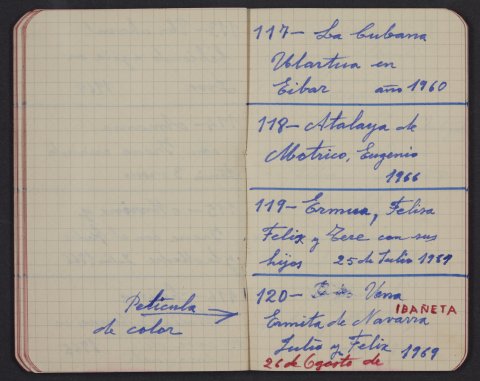 Película
de color
117- La Cubana
Ulartua en
Eibar año 1960
118- Atalaya de
Motrico, Eugenio
1966
119- Ermua, Felisa
Felix y Tere con sus
hijos 25 de Julio 1969
120- Vena
IBAÑETA
Ermita de Navarra
Julio y Felix 1969
26 de Agosto de